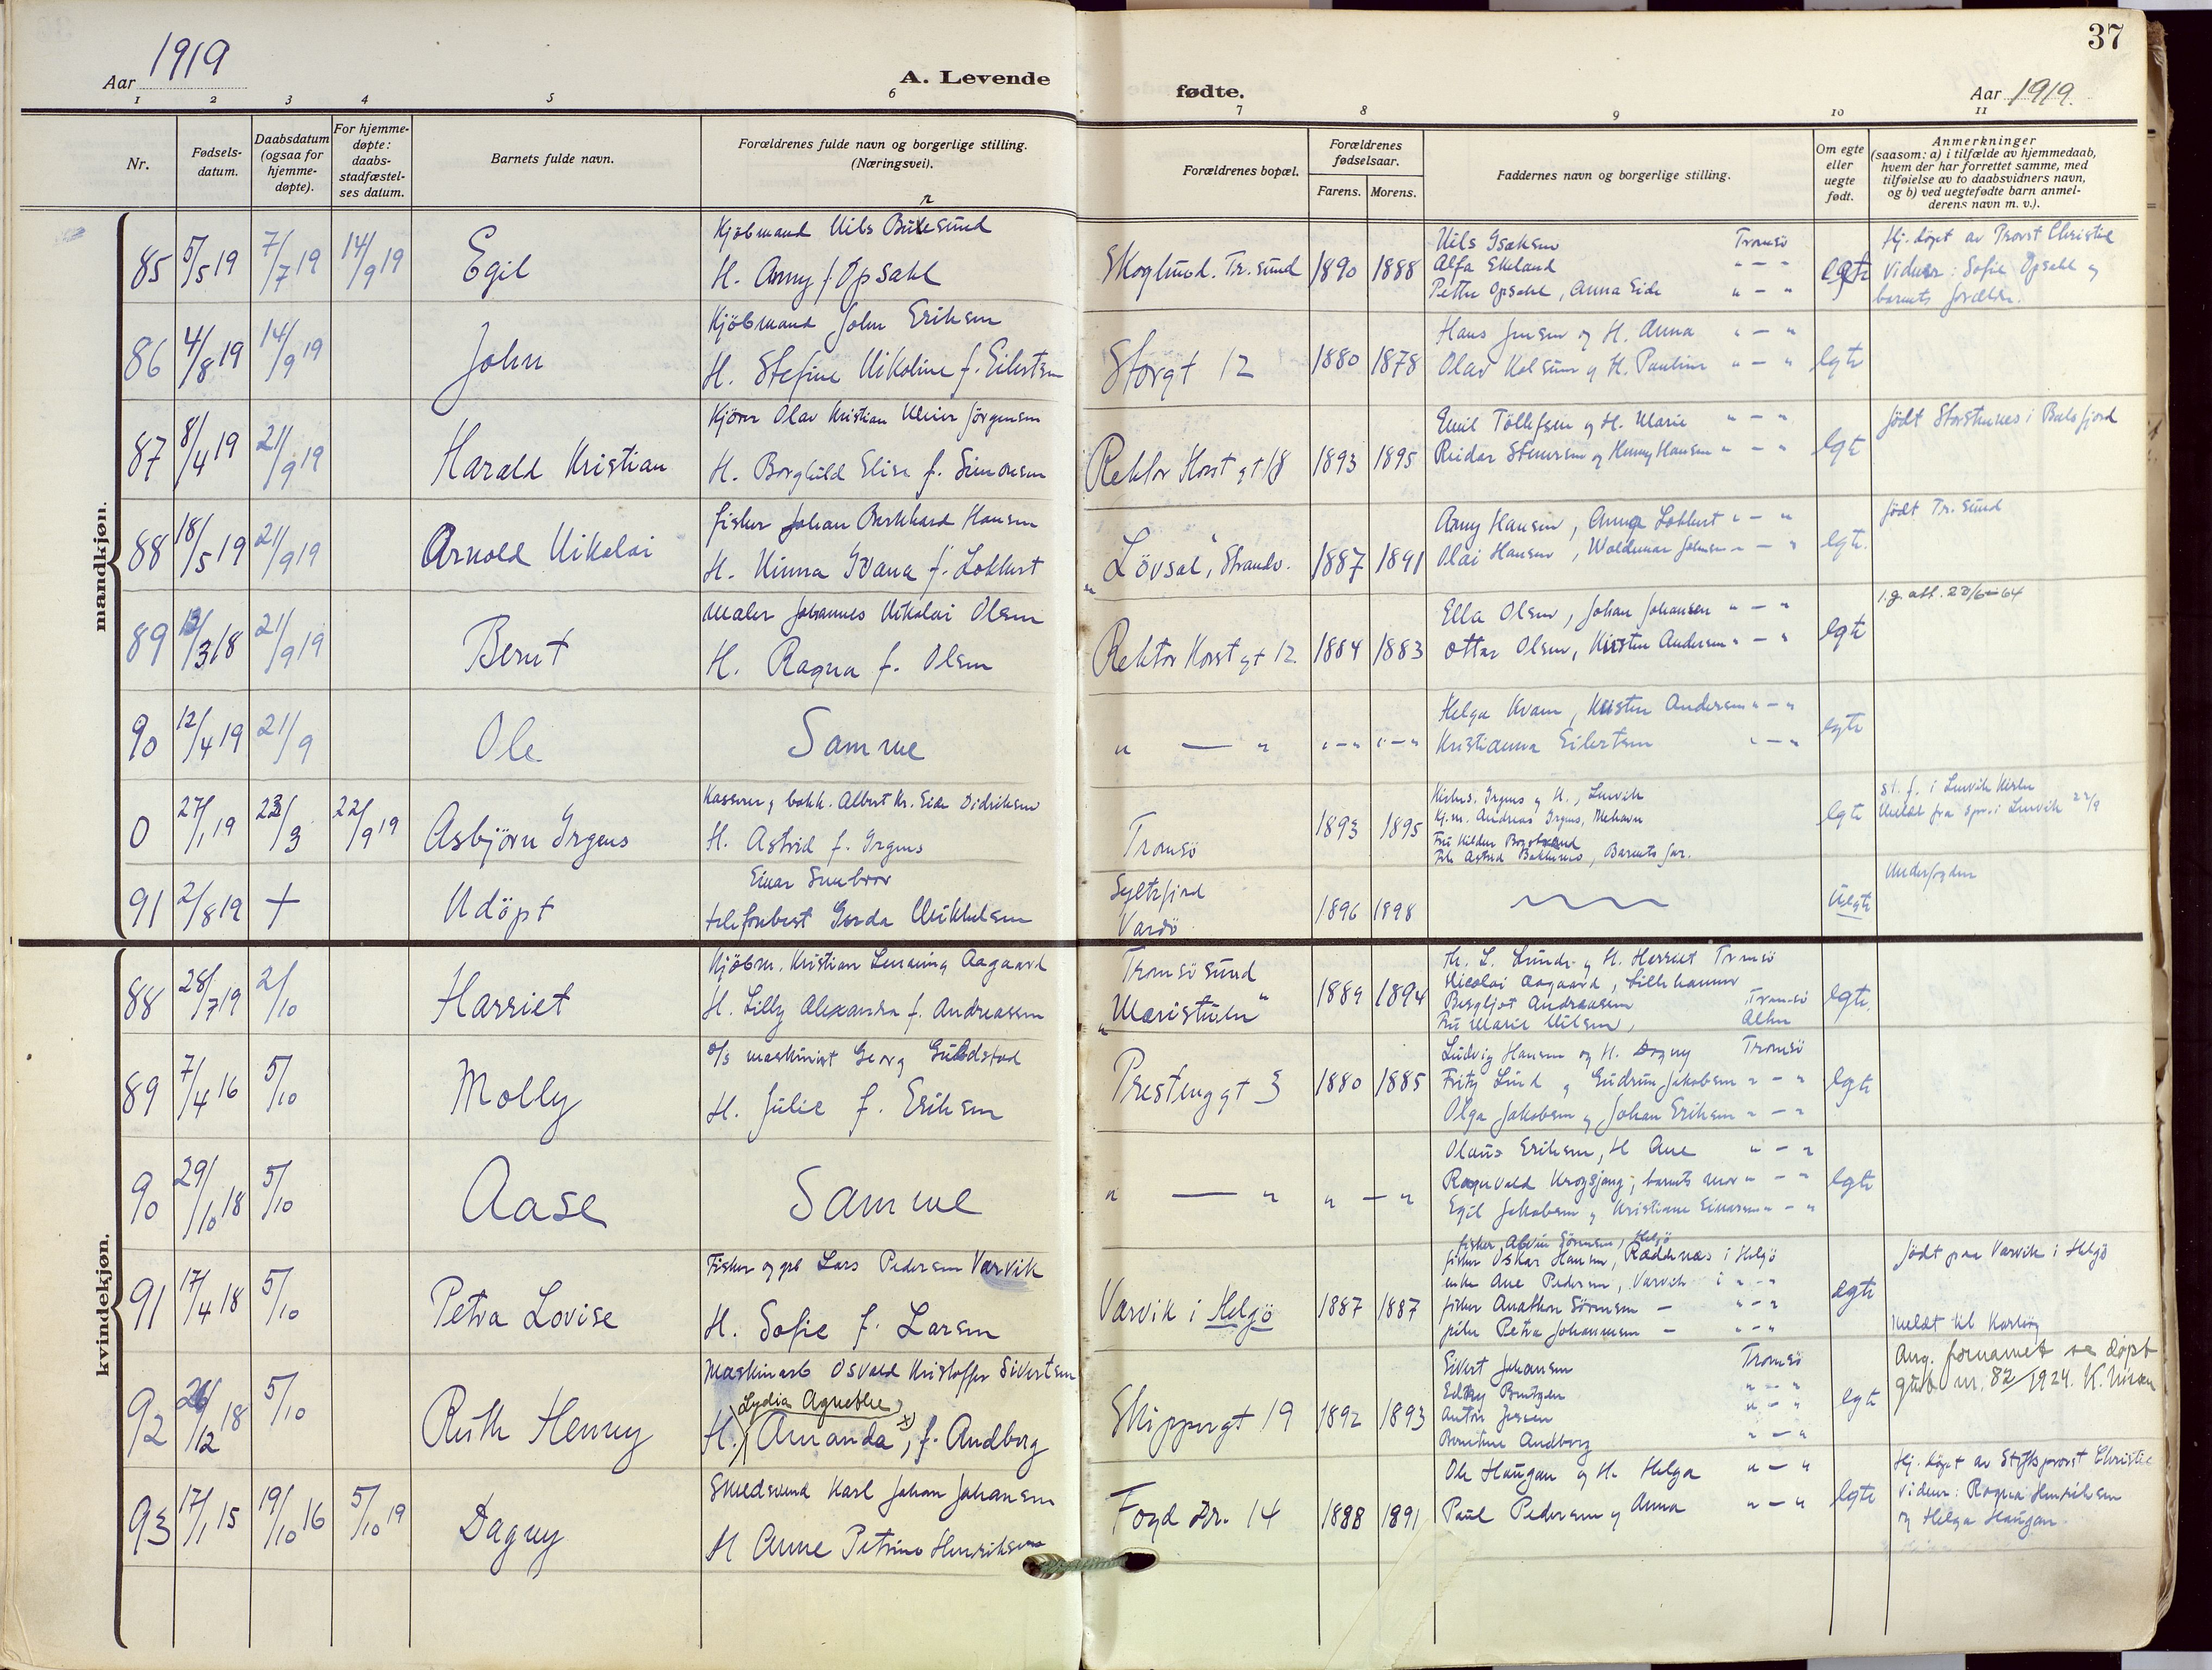 37
Aar 1919 A. Levende fødte. Aar 1919.
1 2 3 4 5 6 7 8 9 10 11
Nr. Fødsels-datum. Daabsdatum (ogsaa for hjemme-døpte). For hjemme-døpte: daabs-stadfæstel-ses datum. Barnets fulde navn. Forældrenes fulde navn og borgerlige stilling. (Næringsvei). Forældrenes bopæl. Forældrenes fødselsaar. Farens. Morens. Faddernes navn og borgerlige stilling. Om egte eller uegte født. Anmerkninger (saasom: a) i tilfælde av hjemmedaab, hvem der har forrettet samme, med tilføielse av to daabsvidners navn, og b) ved uegtefødte barn anmel-derens navn m. v.).
mandkjøn.
85 5/5 19 7/7 19 14/9 19 Egil
Kjøbmand Nils
H. Anny f. Opsahl
Skoglund. Tr.sund 1890 1888
Nils Isaksen Tromsö
Alfa Ekeland " — "
Petter Opsahl, Anna Eide " — "
egte
Hj. døpt av Provst Christie
Vidner: Sofie Opsahl og
barnets forældre.
86 4/8 19 14/9 19 John
Kjöbmand John Eriksen
H. Stefine Nikoline f. Eilertsen
Storgt 12 1880 1878
Hans Jensen og H. Anna " — "
Olav Kolsum og H. Pauline " — "
egte
87 8/4 19 21/9 19 Harald Kristian
Kjörer Olav Kristian Meier Jörgensen
H. Borghild Elise f. Simonsen
Rektor Horst gt 18 1893 1895
Emil Tollefsen og H. Marie " — "
Reidar Stenersen og Henny Hansen " — "
egte
født Storstennes i Balsfjord
88 18/5 19 21/9 19 Arnold Nikolai
fisker Johan Burkhard Hansen
H. Ninna Ivana f. Lokkert
"Lövsal", Strandv. 1887 1891
Anny Hansen, Anna Lokkert " — "
Olai Hansen, Waldemar Johnsen " — "
egte.
født Tr. sund
89 13/3 18 21/9 19 Bernt
Maler Johannes Nikolai Olsen
H. Ragna f. Olsen
Rektor Horst gt 12 1884 1883
Ella Olsen, Johan Johansen " — "
Ottar Olsen, Kirsten Andersen " — "
egte
l.g. att. 22/6-64
90 12/4 19 21/9 Ole
Samme
" — " " — " " — "
Helga Kvam, Kirsten Andersen " — "
Kristianna Eilertsen " — "
egte
0 27/1 19 23/3 22/9 19 Asbjörn Irgens
Kasserer og bokh. Albert Kr. Eide Didriksen
H. Astrid f. Irgens
Tromsö 1893 1895
Kirkes. Irgens og H., Lenvik
Kj.m. Andreas Irgens, Mehavn
Barnets far.
egte
st. f. i Lenvik Kirke
Meldt fra spr. i Lenvik 22/9
91 2/8 19 + Udöpt
Einar
telefonbest Gerda Mikkelsen
Syltefjord
Vardö
1896 1898
uegte
kvindekjøn.
88 28/7 19 2/10 Harriet
Kjöbm. Kristian Lemming Aagaard
H. Lilly Alexandra f. Andreassen
Tromsösund
"Maristuen" 1889 1894
Th. L. Lund og H. Herriet Tromsö
Nicolai Aagaard, Lillehammer
Bergljot Andreassen Tromsö
Fru Marie Nilsen, Alten
egte.
89 7/4 16 5/10 Molly
D/S maskinist Georg Guldstad
H. Julie f. Eriksen
Prestenggt 3 1880 1885
Ludvig Hansen og H. Dagny Tromsö
Fritz Lind og Gudrun Jakobsen " — "
Olga Jakobsen og Johan Eriksen " — "
egte
90 29/10 18 5/10 Aase
Samme
" — " " — "
Olaus Eriksen, H Ane " — "
Ragnvald Krogsjeng; barnets mor " — "
Egil Jakobsen og Kristiane Einarsen " — "
egte
91 17/4 18 5/10 Petra Lovise
Fisker og grb Lars Pedersen Varvik
H. Sofie f. Larsen
Varvik i Helgö 1887 1887
fisker Alvin Sörensen, Helgö
fisker Oskar Hansen, Raddenæs i Helgö
enke Ane Pedersen, Varvik i " — "
fisker Anathon Sörensen — " — "
pike Petra Johannesen — " — "
egte
født paa Varvik i Helgö
meldt til Karlsöy
92 26/12 18 5/10 Ruth Henny
Maskinarb Osvald Kristoffer Sivertsen
Lydia Agnethe
H. Amanda x), f. Andberg
Skippergt 19 1892 1893
Sivert Johansen Tromsö
Edkey Bentzen " — "
Anton Jensen " — "
Berntine Andberg " — "
egte
Ang. fornavnet se døpt
gutt nr. 82/1924. K. Nissen
93 17/1 15 19/10 16 5/10 19 Dagny
Smedsvend Karl Johan Johansen
H Anne Petrine Henriksen
Fogd Dr. 14 1888 1891
Ole Haugan og H. Helga " — "
Paul Pedersen og Anna " — "
egte
Hj. døpt av Stiftsprovst Christie
Vidner: Ragna Henriksen
og Helga Haugan.